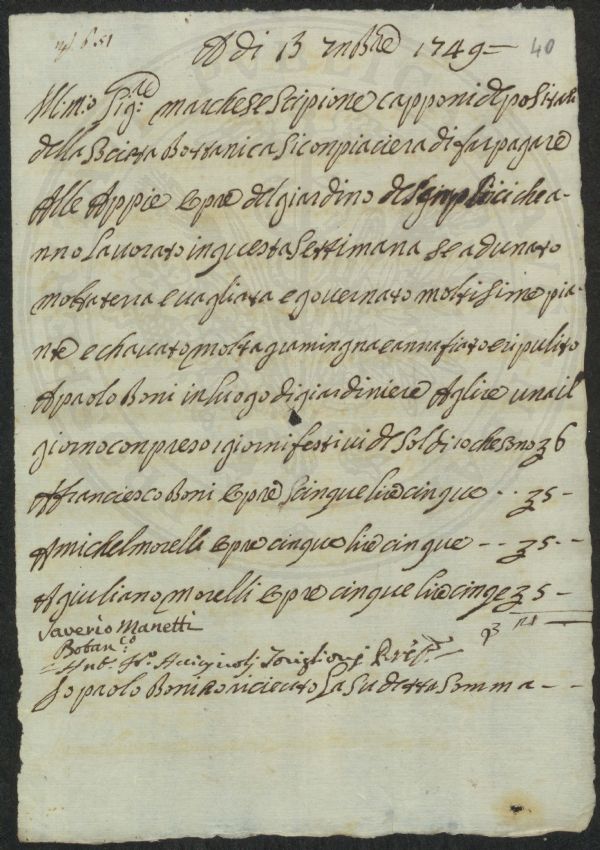 A di 13 7mbre 1749 40
Ill:mo Sig:re marchese Scipione capponi depositario
della Societa Bottanica Si conpiaciera di far pagare
Alle Appie Opre del giardino de Senplici che a-
nno Lavorato in questa Settimana se adunato
molta terra e vagliata e governato moltisime pia-
nte e chavato molta gramingna e annafiato e ripulito
A paolo Boni in luogo di giardiniere A glire una il
giorno conpreso i giorni festivi di Soldi 10 che sono 6
A francesco Boni Opre Scinque lire cinque - - 5 -
A michel morelli Opre cinque lire cinque - - 5 - -
A giuliano morelli Opre cinque lire cinqe 5 -
Saverio Manetti
Botan:co
Io paolo Boni o riceuto La Su detta Somma - -